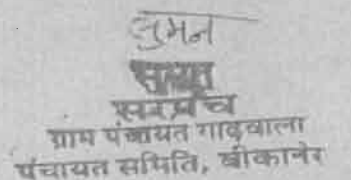 सुमन
सरपंच
ग्राम पंचायत गाढवाला
पंचायत समिति, बीकानेर